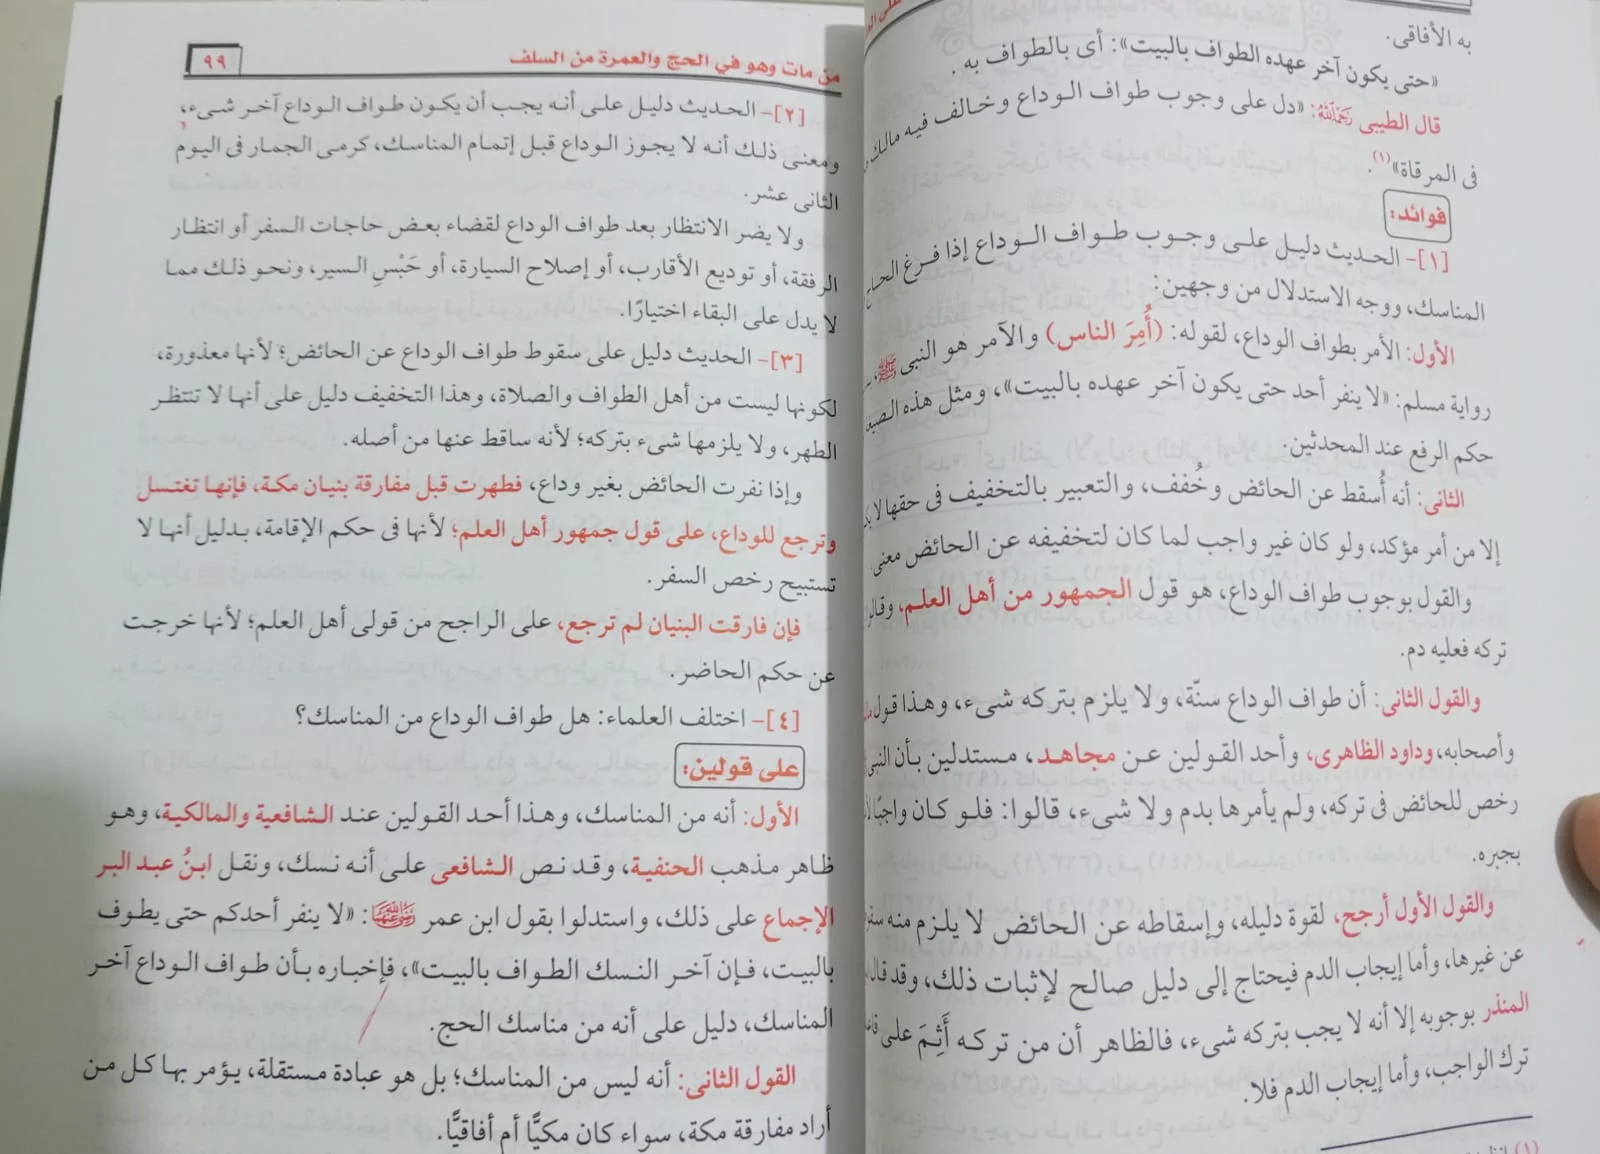 به الأفاقى.
«حتى يكون آخر عهده الطواف بالبيت»: أى بالطواف به.
قال الطيبى رحمه الله: «دل على وجوب طواف الوداع وخالف فيه مالك
فى المرقاة»(١).
فوائد:
[١]- الحديث دليل على وجوب طواف الوداع إذا فرغ
المناسك، ووجه الاستدلال من وجهين:
الأول: الأمر بطواف الوداع، لقوله: (أُمِرَ الناس) والآمر هو النبى ﷺ،
رواية مسلم: «لا ينفر أحد حتى يكون آخر عهده بالبيت»، ومثل هذه
حكم الرفع عند المحدثين.
الثانى: أنه أُسقط عن الحائض وخُفف، والتعبير بالتخفيف فى حقها لا
إلا من أمر مؤكد، ولو كان غير واجب لما كان لتخفيفه عن الحائض معنى.
والقول بوجوب طواف الوداع، هو قول الجمهور من أهل العلم،
تركه فعليه دم.
والقول الثانى: أن طواف الوداع سنّة، ولا يلزم بتركه شىء، وهذا قول
وأصحابه، وداود الظاهرى، وأحد القولين عن مجاهد، مستدلين بأن النبى
رخص للحائض فى تركه، ولم يأمرها بدم ولا شىء، قالوا: فلو كان واجبًا
بجبره.
والقول الأول أرجح، لقوة دليله، وإسقاطه عن الحائض لا يلزم منه
عن غيرها، وأما إيجاب الدم فيحتاج إلى دليل صالح لإثبات ذلك، وقد قال
المنذر بوجوبه إلا أنه لا يجب بتركه شىء، فالظاهر أن من تركه أَثِمَ على
ترك الواجب، وأما إيجاب الدم فلا.
(١)
من مات وهو في الحج والعمرة من السلف ٩٩
[٢]- الحديث دليل على أنه يجب أن يكون طواف الوداع آخر شىء،
ومعنى ذلك أنه لا يجوز الوداع قبل إتمام المناسك، كرمى الجمار فى اليوم
الثانى عشر.
ولا يضر الانتظار بعد طواف الوداع لقضاء بعض حاجات السفر أو انتظار
الرفقة، أو توديع الأقارب، أو إصلاح السيارة، أو حَبْسِ السير، ونحو ذلك مما
لا يدل على البقاء اختيارًا.
[٣]- الحديث دليل على سقوط طواف الوداع عن الحائض؛ لأنها معذورة،
لكونها ليست من أهل الطواف والصلاة، وهذا التخفيف دليل على أنها لا تنتظر
الطهر، ولا يلزمها شىء بتركه؛ لأنه ساقط عنها من أصله.
وإذا نفرت الحائض بغير وداع، فطهرت قبل مفارقة بنيان مكة، فإنها تغتسل
وترجع للوداع، على قول جمهور أهل العلم؛ لأنها فى حكم الإقامة، بدليل أنها لا
تستبيح رخص السفر.
فإن فارقت البنيان لم ترجع، على الراجح من قولى أهل العلم؛ لأنها خرجت
عن حكم الحاضر.
[٤]- اختلف العلماء: هل طواف الوداع من المناسك؟
على قولين:
الأول: أنه من المناسك، وهذا أحد القولين عند الشافعية والمالكية، وهو
ظاهر مذهب الحنفية، وقد نص الشافعى على أنه نسك، ونقل ابنُ عبد البر
الإجماع على ذلك، واستدلوا بقول ابن عمر رضي الله عنهما: «لا ينفر أحدكم حتى يطوف
بالبيت، فإن آخر النسك الطواف بالبيت»، فإخباره بأن طواف الوداع آخر
المناسك، دليل على أنه من مناسك الحج.
القول الثانى: أنه ليس من المناسك؛ بل هو عبادة مستقلة، يؤمر بها كل من
أراد مفارقة مكة، سواء كان مكيًّا أم أفاقيًّا.